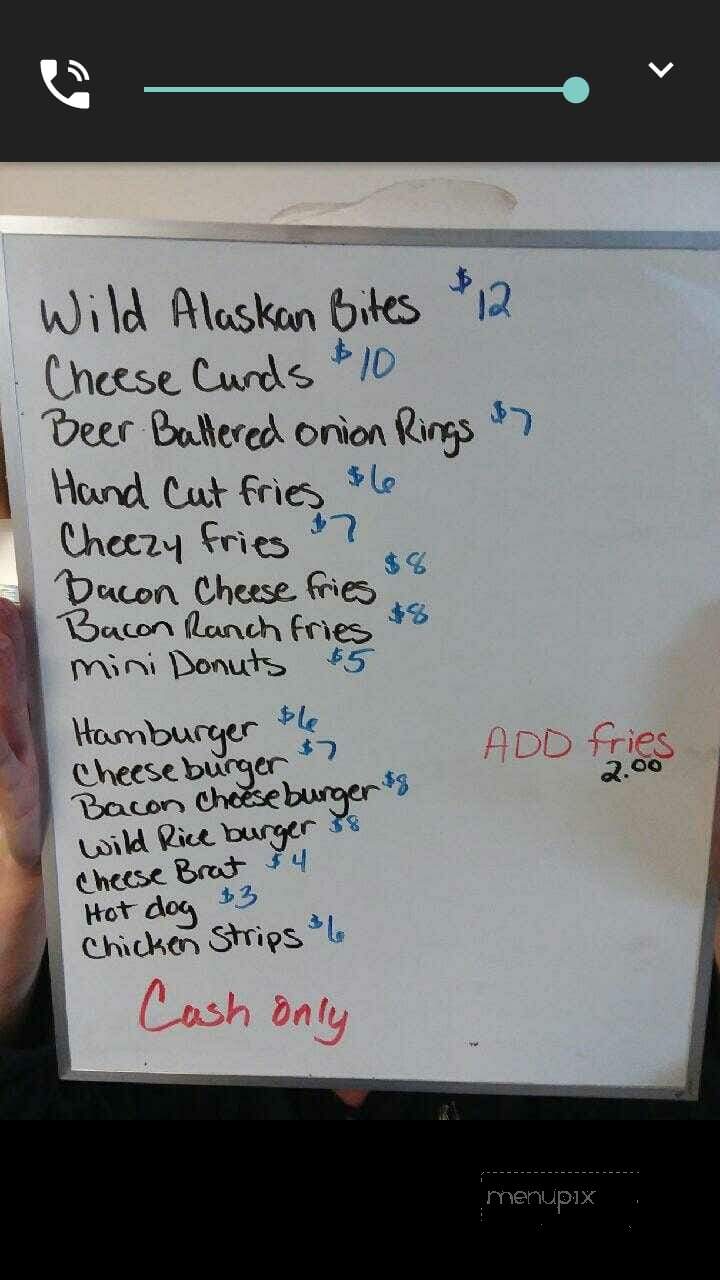 Wild Alaskan Bites $12
Cheese Curds $10
Beer Battered onion Rings $7
Hand Cut fries $6
Cheezy fries $7
Bacon Cheese fries $8
Bacon Ranch fries $8
mini Donuts $5
Hamburger $6
Cheeseburger $7
Bacon cheeseburger $8
Wild Rice burger $8
Cheese Brat $4
Hot dog $3
Chicken Strips $6
ADD fries
2.00
Cash only
menupix